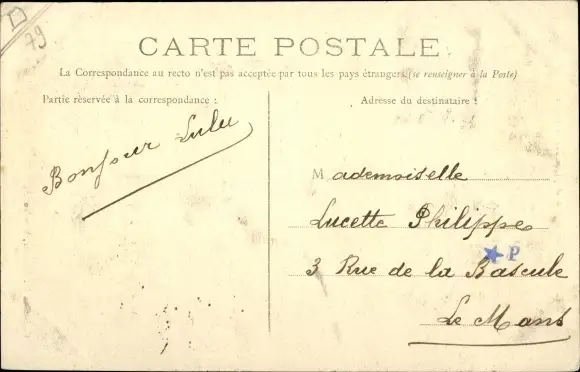 79
CARTE POSTALE
La Correspondance au recto n'est pas acceptée par tous les pays étrangers. (se renseigner à la Poste)
Partie réservée à la correspondance :
Adresse du destinataire :
Bonjour Lulu
Mademoiselle
Lucette Philippe
P
3 Rue de la Bascule
Le Mans